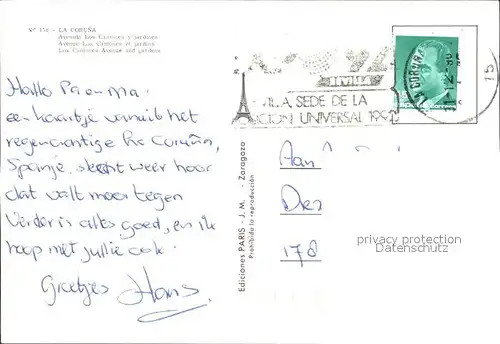 Nº 158 - LA CORUÑA
Avenida Los Cantones y jardines
Avenue Los Cantones et jardins
Los Cantones Avenue and gardens
Hallo Pa en Ma.
een kaartje vanuit het
regenachtige La Coruña,
Spanje, slecht weer hoor
dat valt maar tegen
Verder is alles goed, en ik
hoop met jullie ook.
Groetjes Hans
Ediciones PARIS - J. M. - Zaragoza
Prohibida la reproducción
92
SEVILLA
SEVILLA, SEDE DE LA
EXPOSICION UNIVERSAL 1992
LA CORUÑA
15
Aan
Des
178
privacy protection
Datenschutz